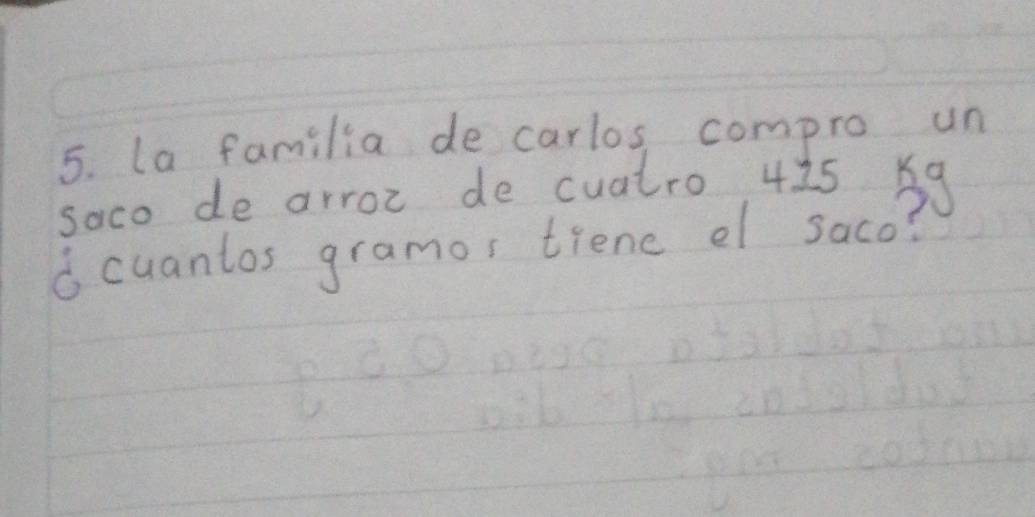 5. la familia de carlos compro un
saco de arroz de cuatro 425 Kg
¿cuantos gramos tiene el saco?